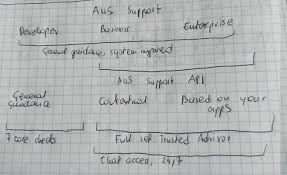 AWS Support
Developer Business Enterprise
General guidance, system impaired
AWS Support API
General guidance
Contextual
Based on your apps
7 core checks
Full set trusted Advisor
Chat access, 24/7